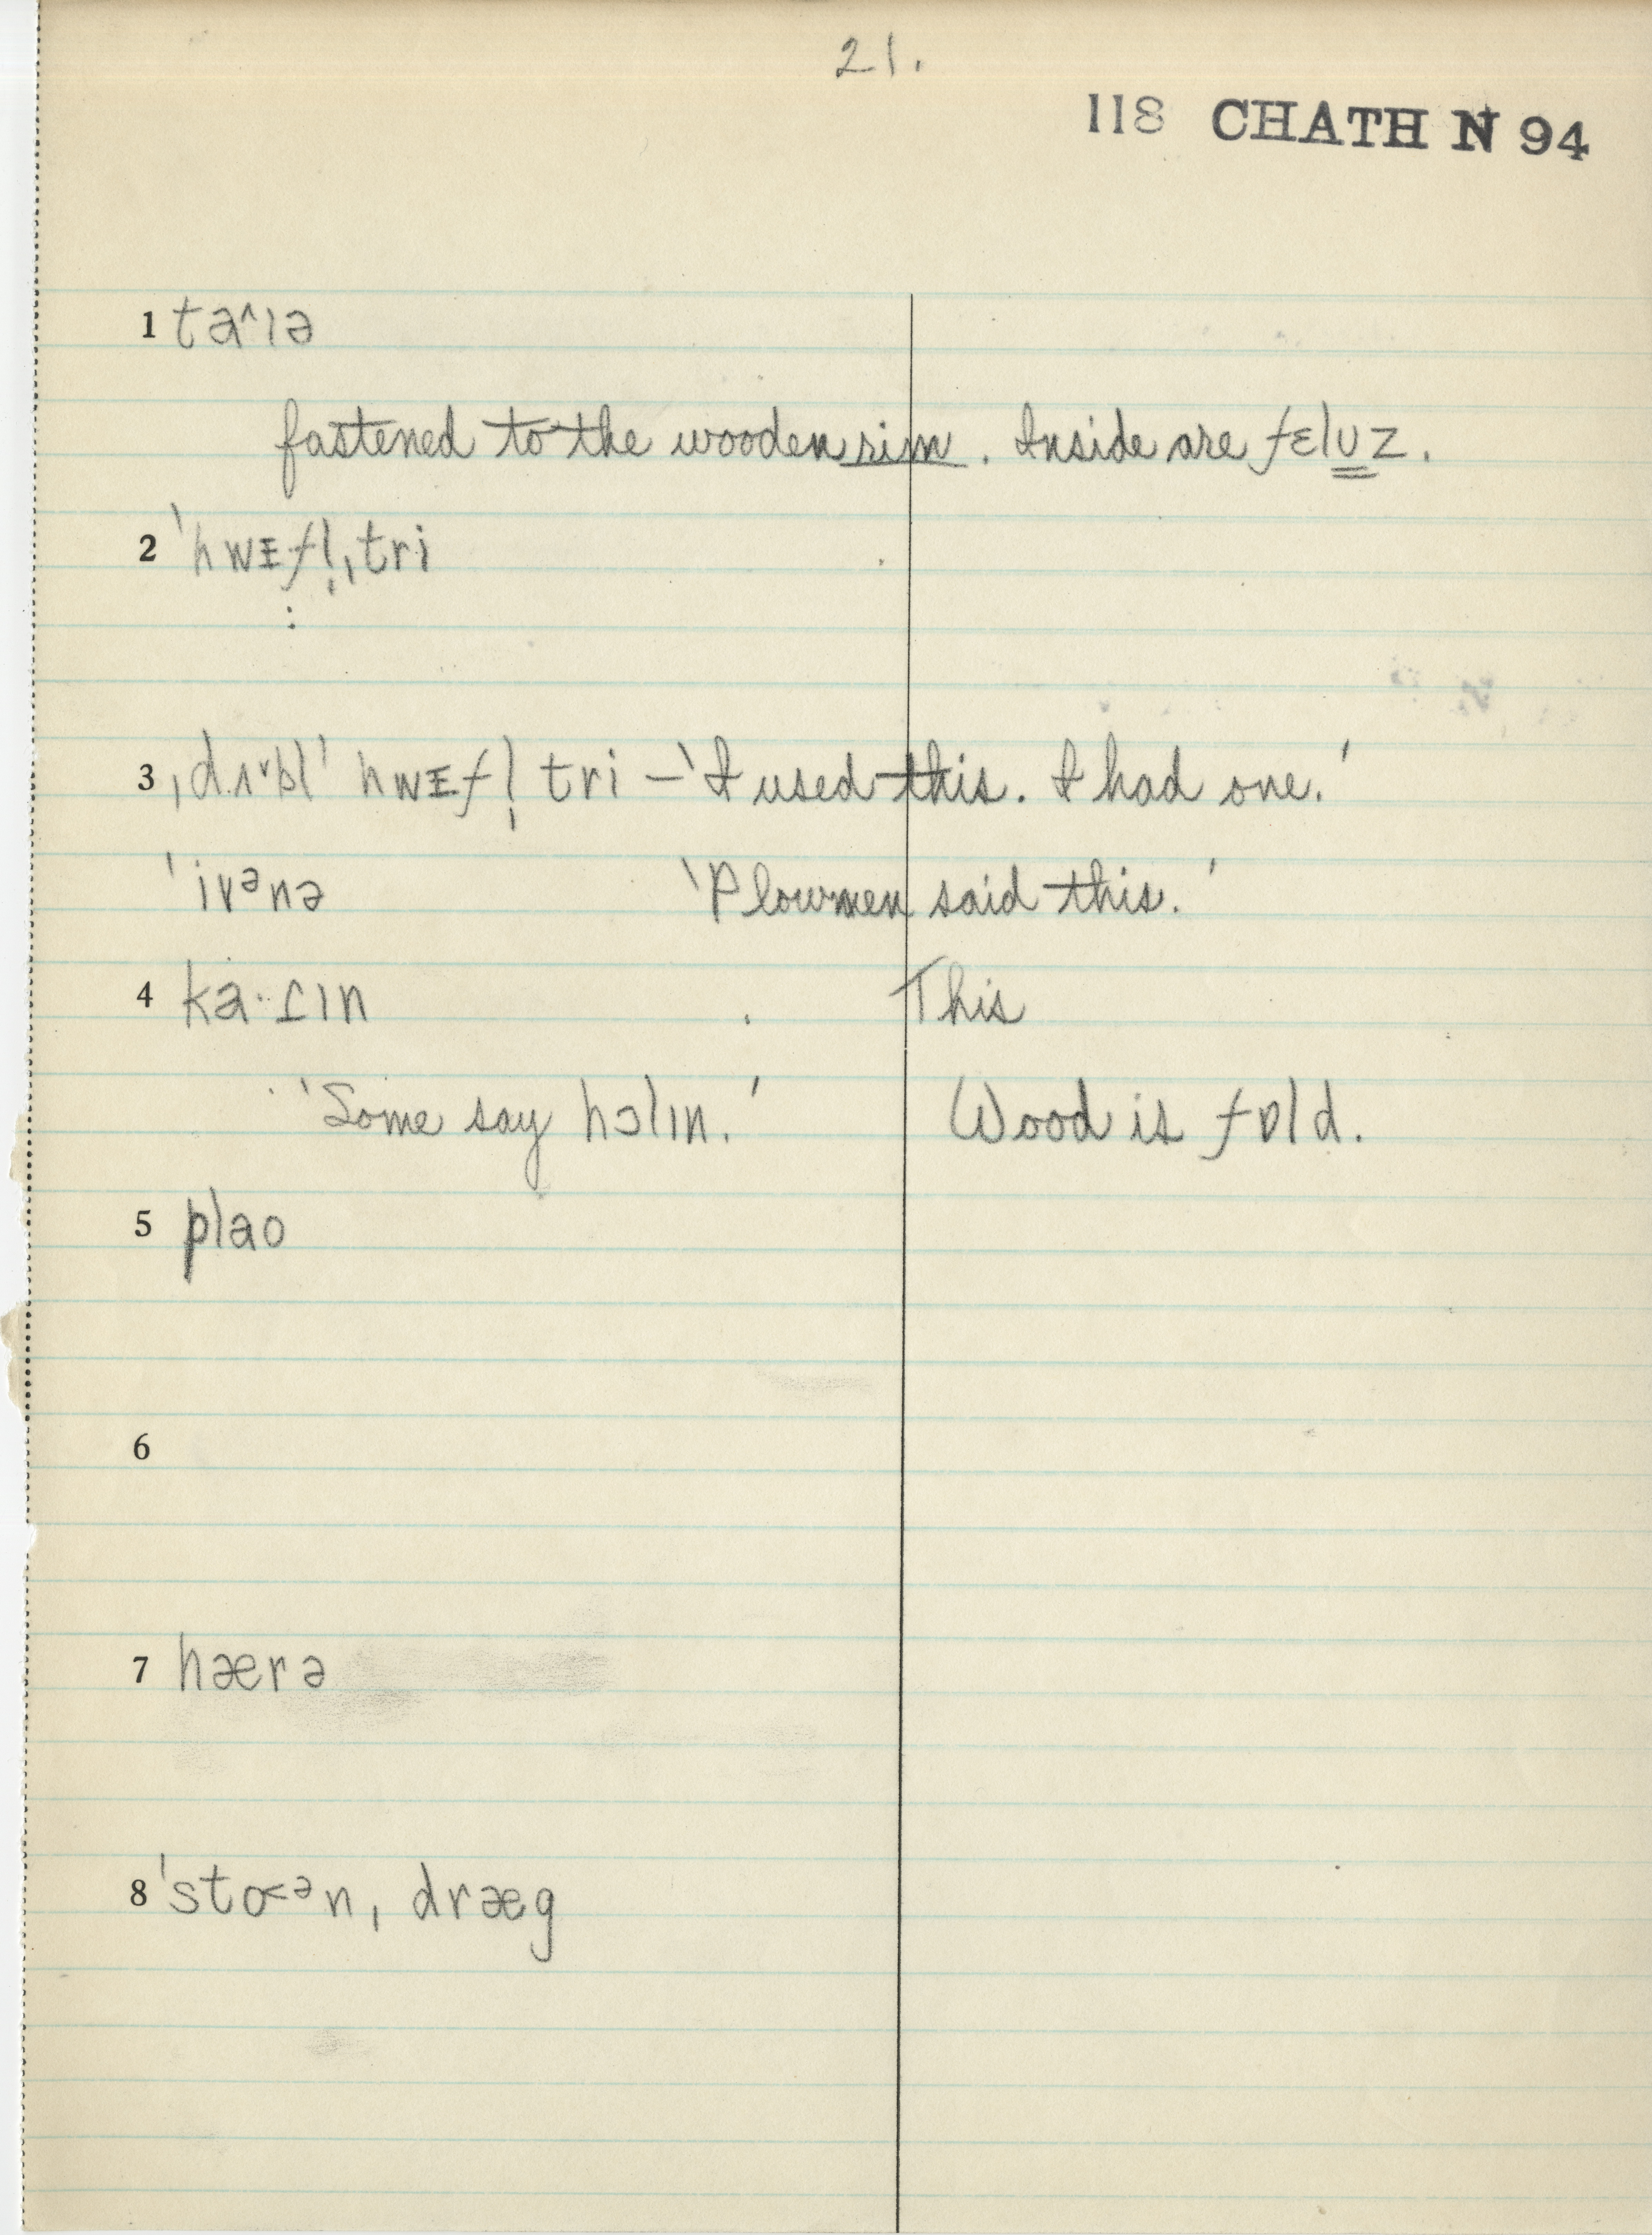 21.
118 CHATH N 94
1 ta^ɪə
fastened to the wooden rim. Inside are fɛlʊz.
2 ˈhwɪfl̩ˌtri
:
3 ˌdʌ˅bl ˈhwɪfl̩ tri – 'I used this. I had one.'
ˈivᵊnə 'Plowmen said this.'
4 ka·ɾɪn This
'Some say hɔlɪn.' Wood is fɒld.
5 plao
6
7 hærə
8 ˈsto<ᵊnˌdræg